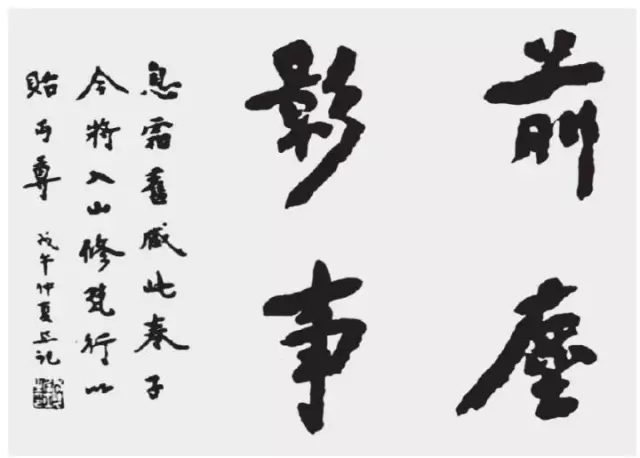 前塵
影事
息霜舊臧此卷子
今將入山修梵行以
貽丏尊 戊午仲夏並記